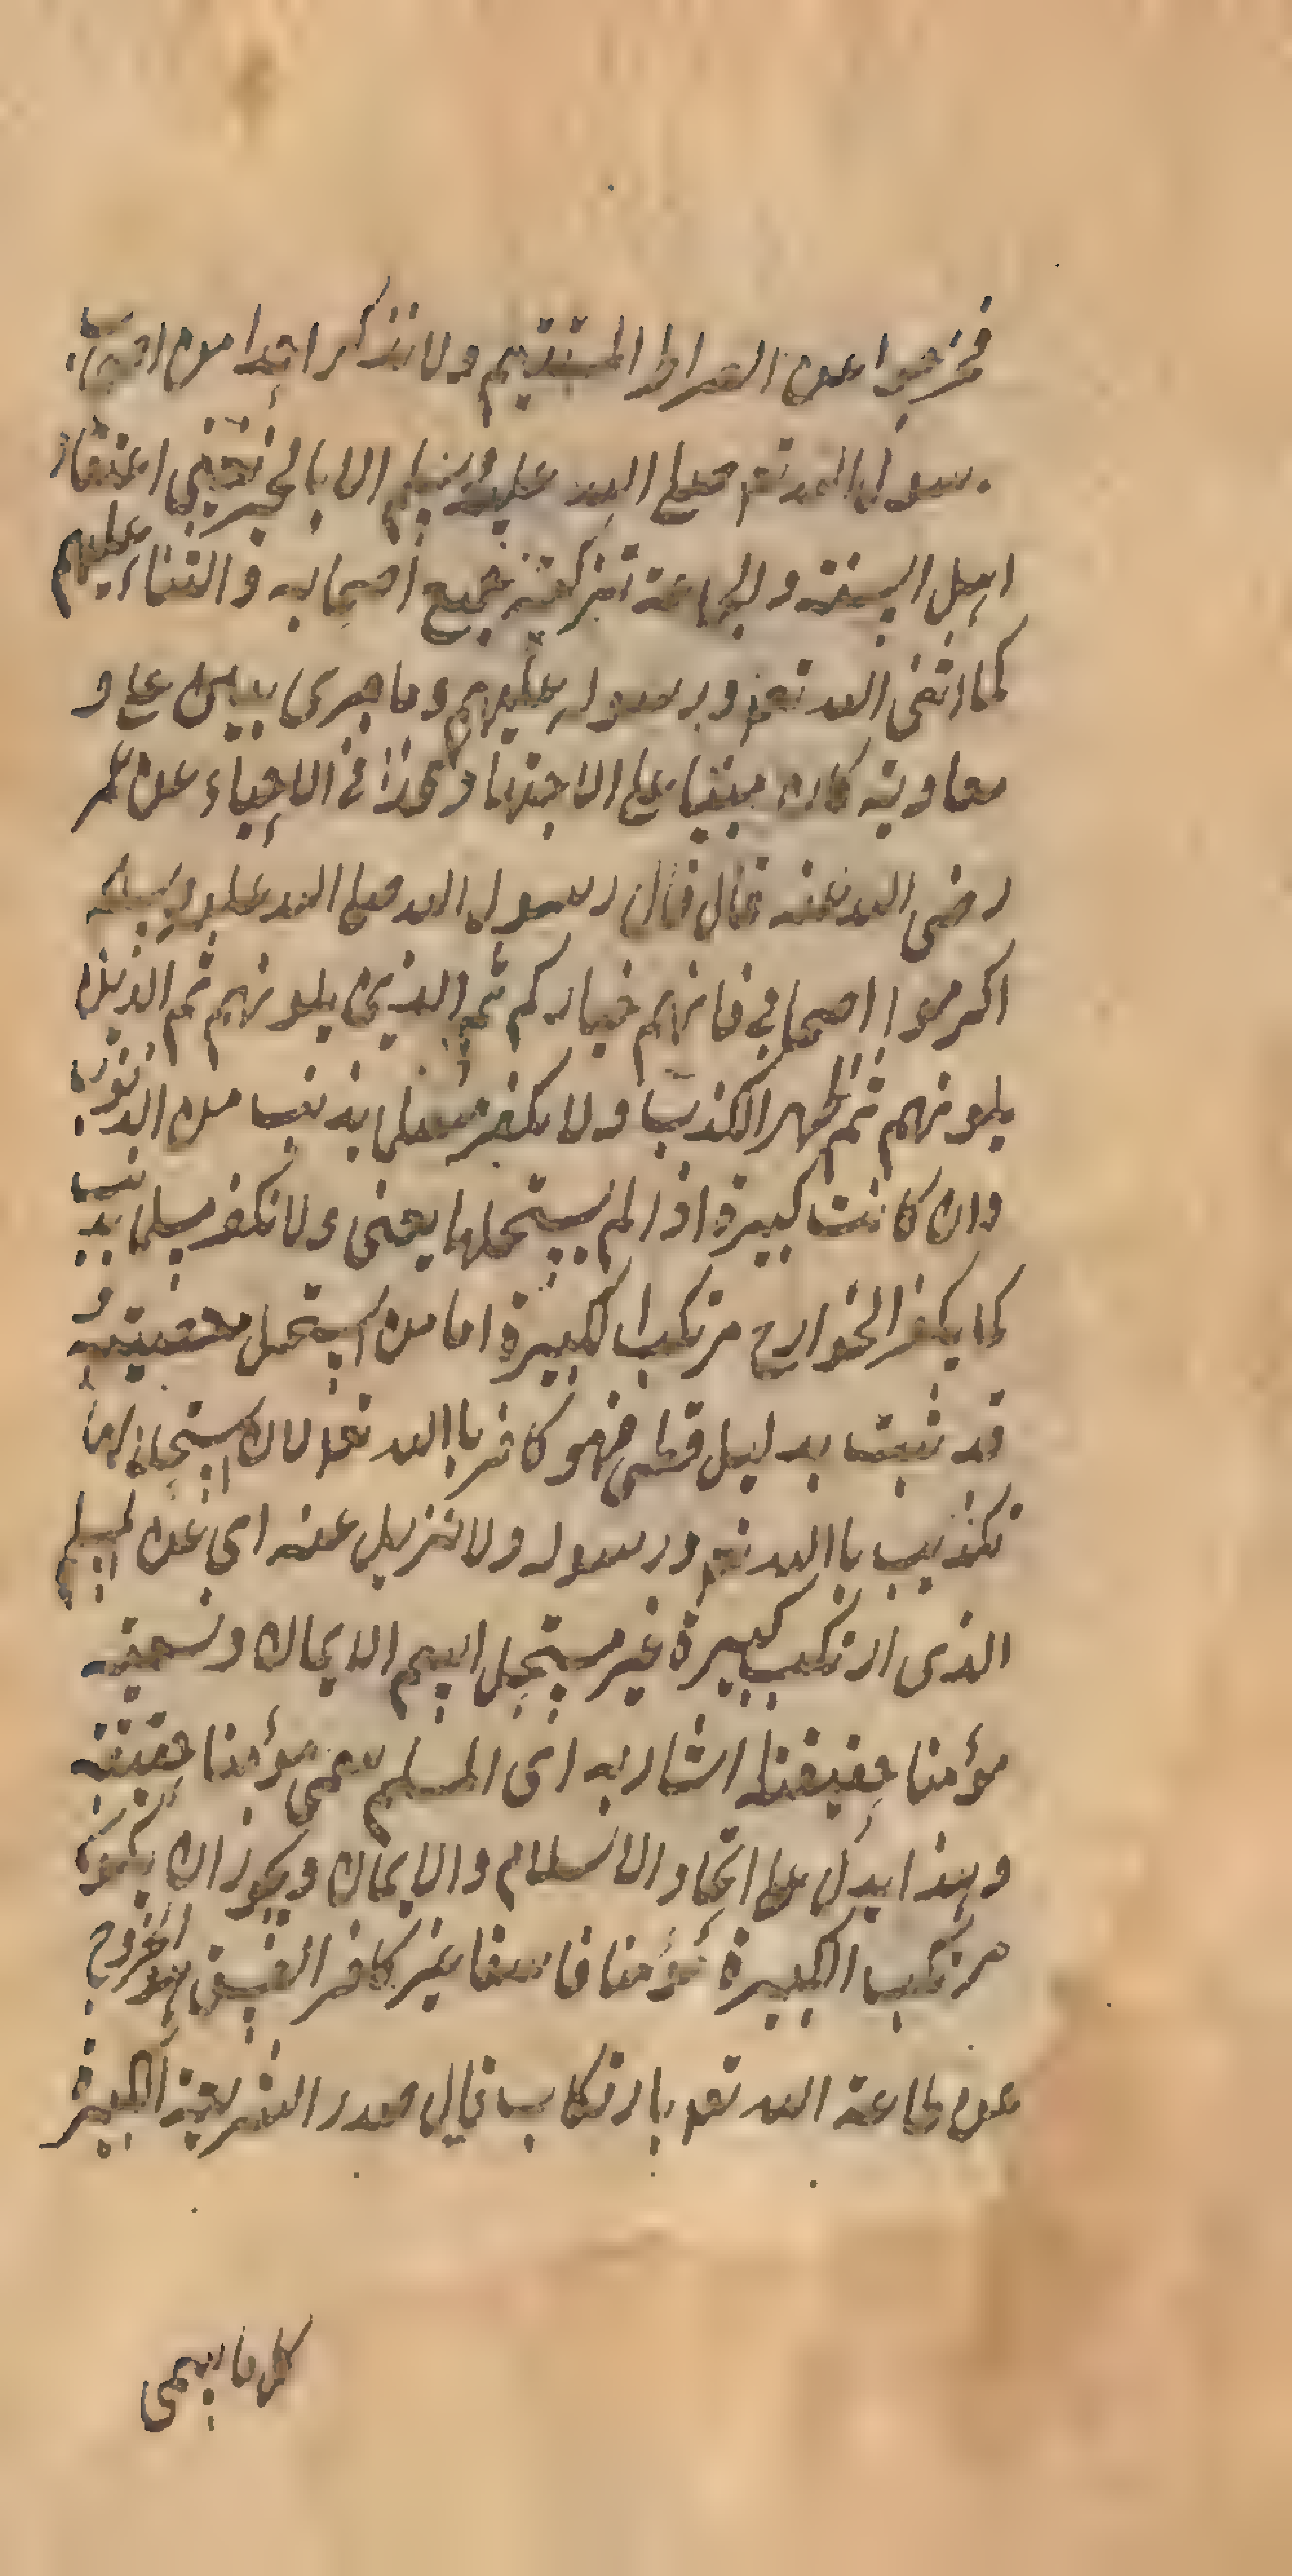 فخرجوا عن الصراط المستقيم ولا نذكر احدا من اصحاب
رسول الله تعم صلى الله عليه وسلم الا بالخير يعنى اعتقاد
اهل السنة والجماعة تزكية جميع أصحابه والثناء عليهم
كما اثنى الله تعم ورسوله عليهم وما جرى بين على و
معاوية كان مبنيا على الاجتهاد وكذا فى الاحياء عن عمر
رضى الله عنه قال قال رسول الله صلى الله عليه وسلم
اكرموا اصحابى فانهم خياركم ثم الذين يلونهم ثم الذين
يلونهم ثم يظهر الكذب ولا نكفر مسلما بذنب من الذنوب
وان كانت كبيرة اذا لم يستحلها يعنى ولا نكفر مسلما بذنب
كما يكفر الخوارج مرتكب الكبيرة اما من استحل معصية و
قد ثبت بدليل قطعى فهو كافر باالله تعم لان استحلالها
تكذيب باالله تعم ورسوله ولا نزيل عنه اى عن المسلم
الذى ارتكب كبيرة غير مستحل اسم الايمان ونسميه
مؤمنا حقيقة اشار به اى المسلم يسمى مؤمنا حقيقة
وهذا يدل على اتحاد الاسلام والايمان ويجوز ان يكون
مرتكب الكبيرة مؤمنا فاسقا غير كافر الفسق هو الخروج
عن طاعة الله تعم بارتكاب قال صدر الشريعة الكبيرة
كل ما يسمى